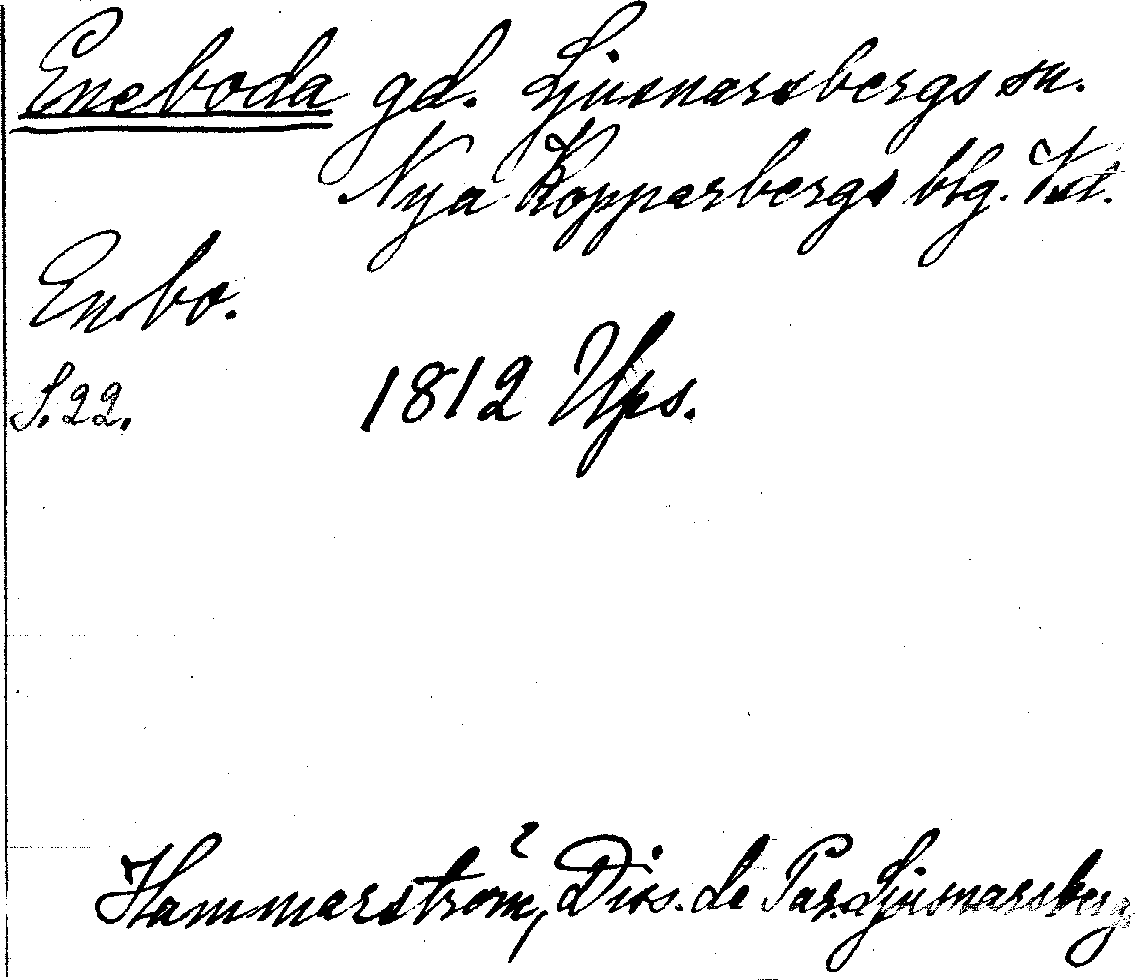 Eneboda gd. Ljusnarsbergs sn.
Nya Kopparbergs blg. Vstl.
Enbo.
S. 22. 1812 Ups.
Hammarström, Diss. de Par. Ljusnarsberg